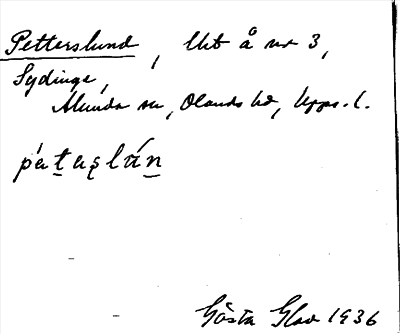 Petterslund, Utb å nr 3,
Sydinge,
Alunda sn, Olands hd, Upps. l.
pä́taslún
Gösta Glad 1936